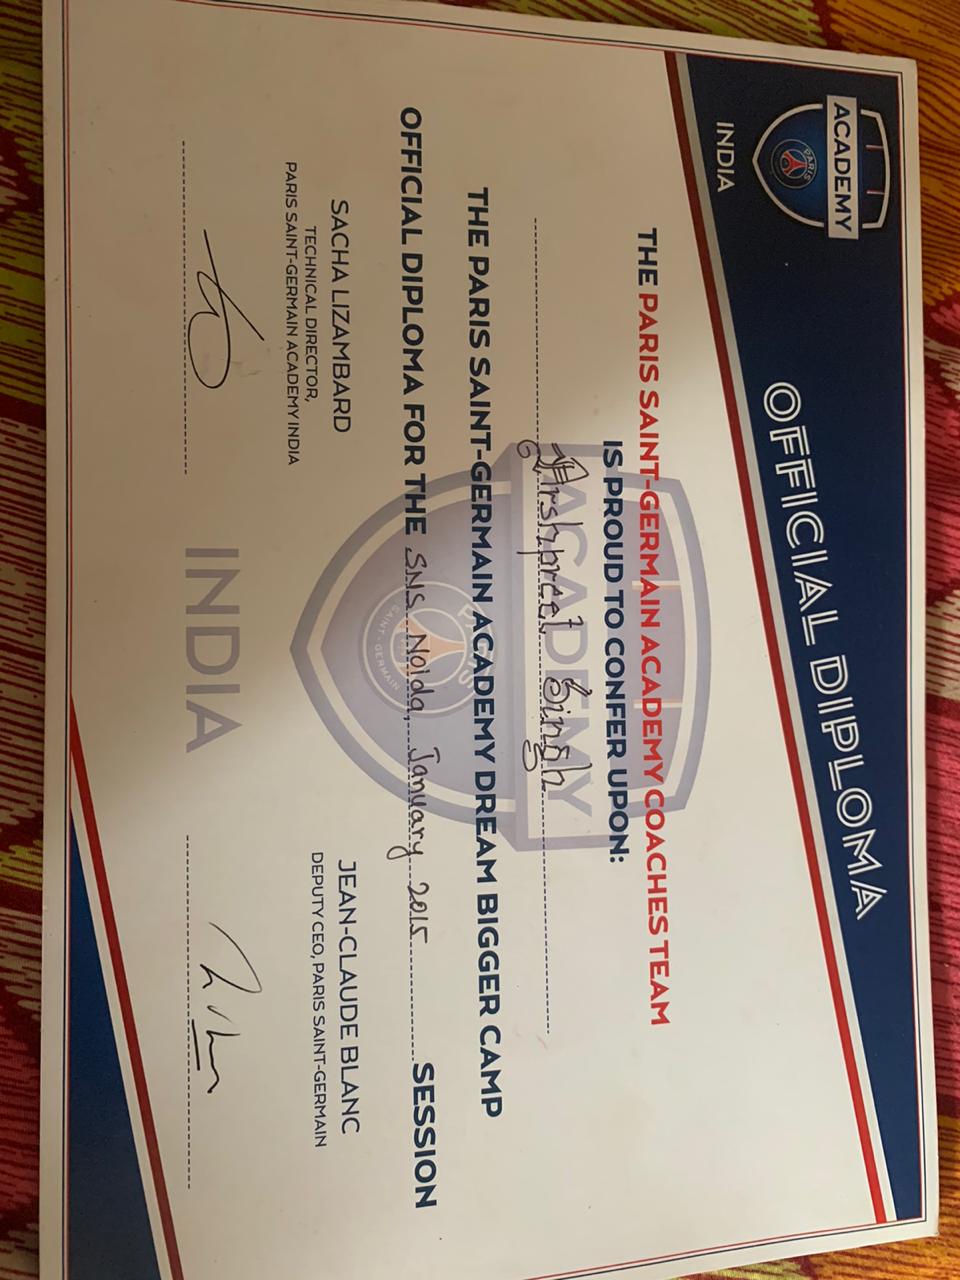 ACADEMY
PARIS
INDIA
OFFICIAL DIPLOMA
THE PARIS SAINT-GERMAIN ACADEMY COACHES TEAM
IS PROUD TO CONFER UPON:
Arshpreet Singh
THE PARIS SAINT-GERMAIN ACADEMY DREAM BIGGER CAMP
OFFICIAL DIPLOMA FOR THE SNS Noida, January 2015 SESSION
SACHA LIZAMBARD
TECHNICAL DIRECTOR,
PARIS SAINT-GERMAIN ACADEMY INDIA
JEAN-CLAUDE BLANC
DEPUTY CEO, PARIS SAINT-GERMAIN
ACADEMY
SAINT-GERMAIN
INDIA